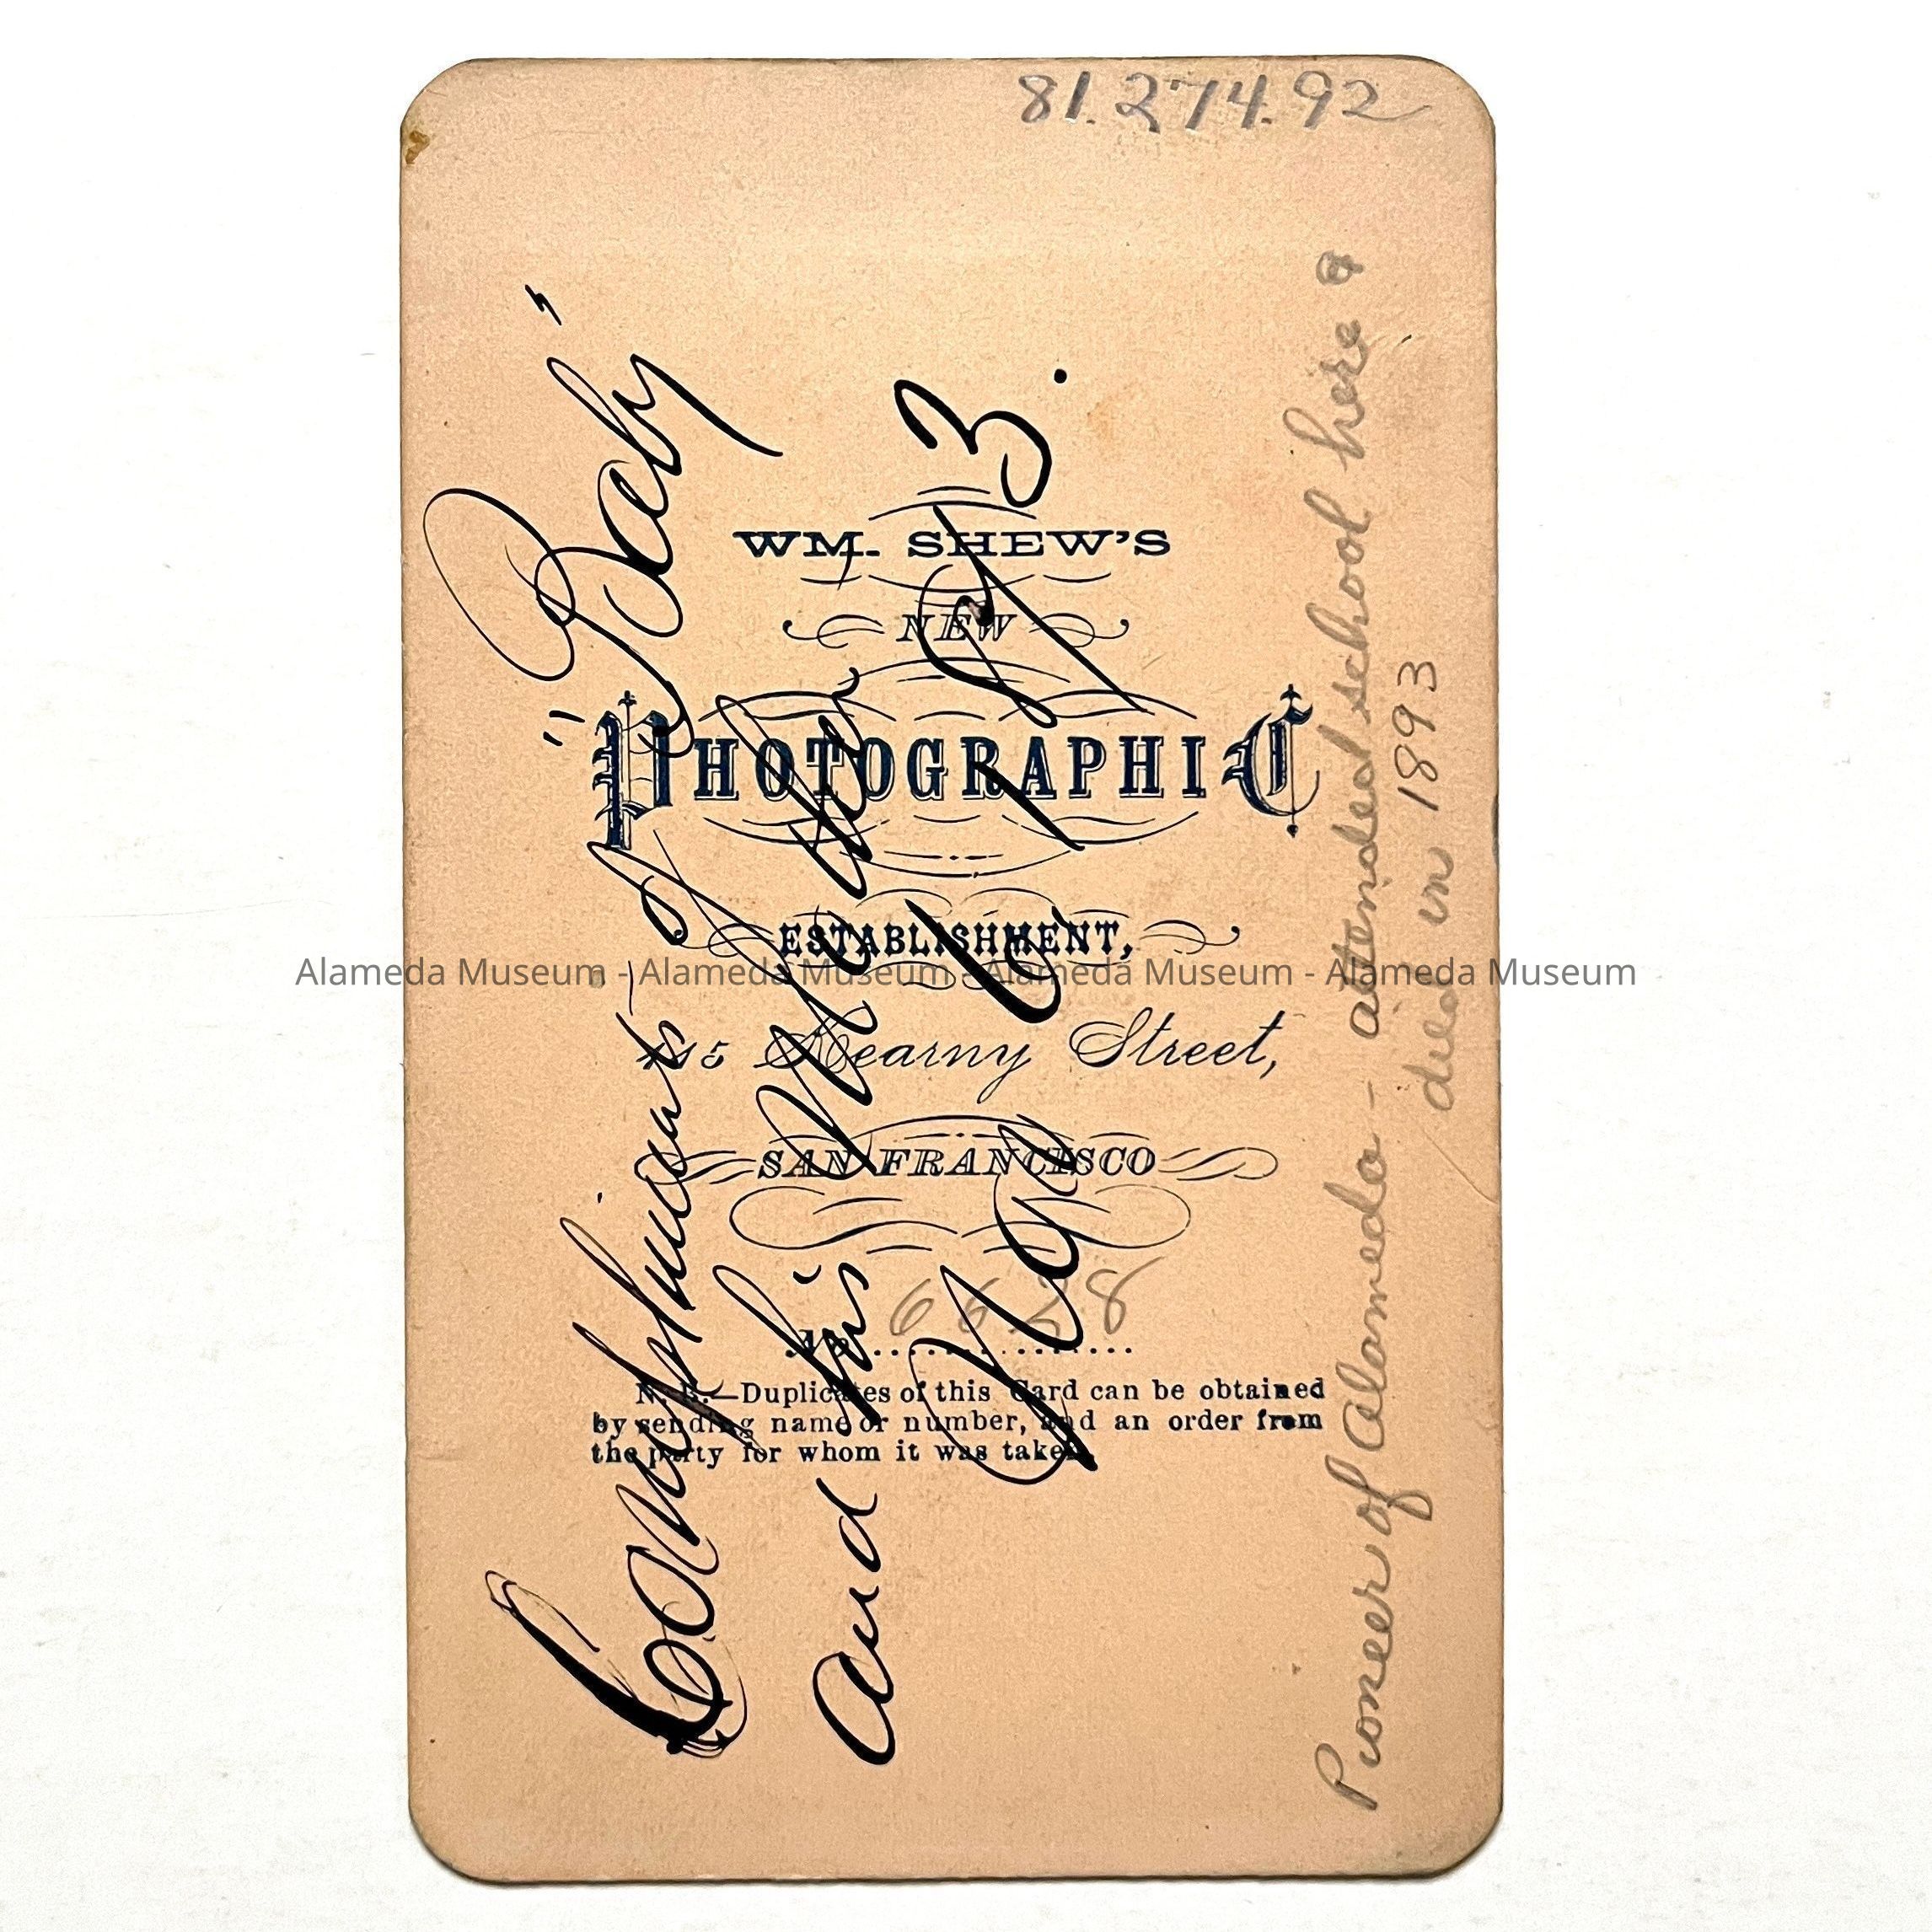 81.274.92
WM. SHEW'S
NEW
PHOTOGRAPHIC
ESTABLISHMENT,
115 Kearny Street,
SAN FRANCISCO
No. 6628
N. B.—Duplicates of this Card can be obtained
by sending name or number, and an order from
the party for whom it was taken.
Compliments of "Baby"
and his Mother
May 6 1873.
Pioneer of Alameda - attended school here &
died in 1893
Alameda Museum - Alameda Museum - Alameda Museum - Alameda Museum